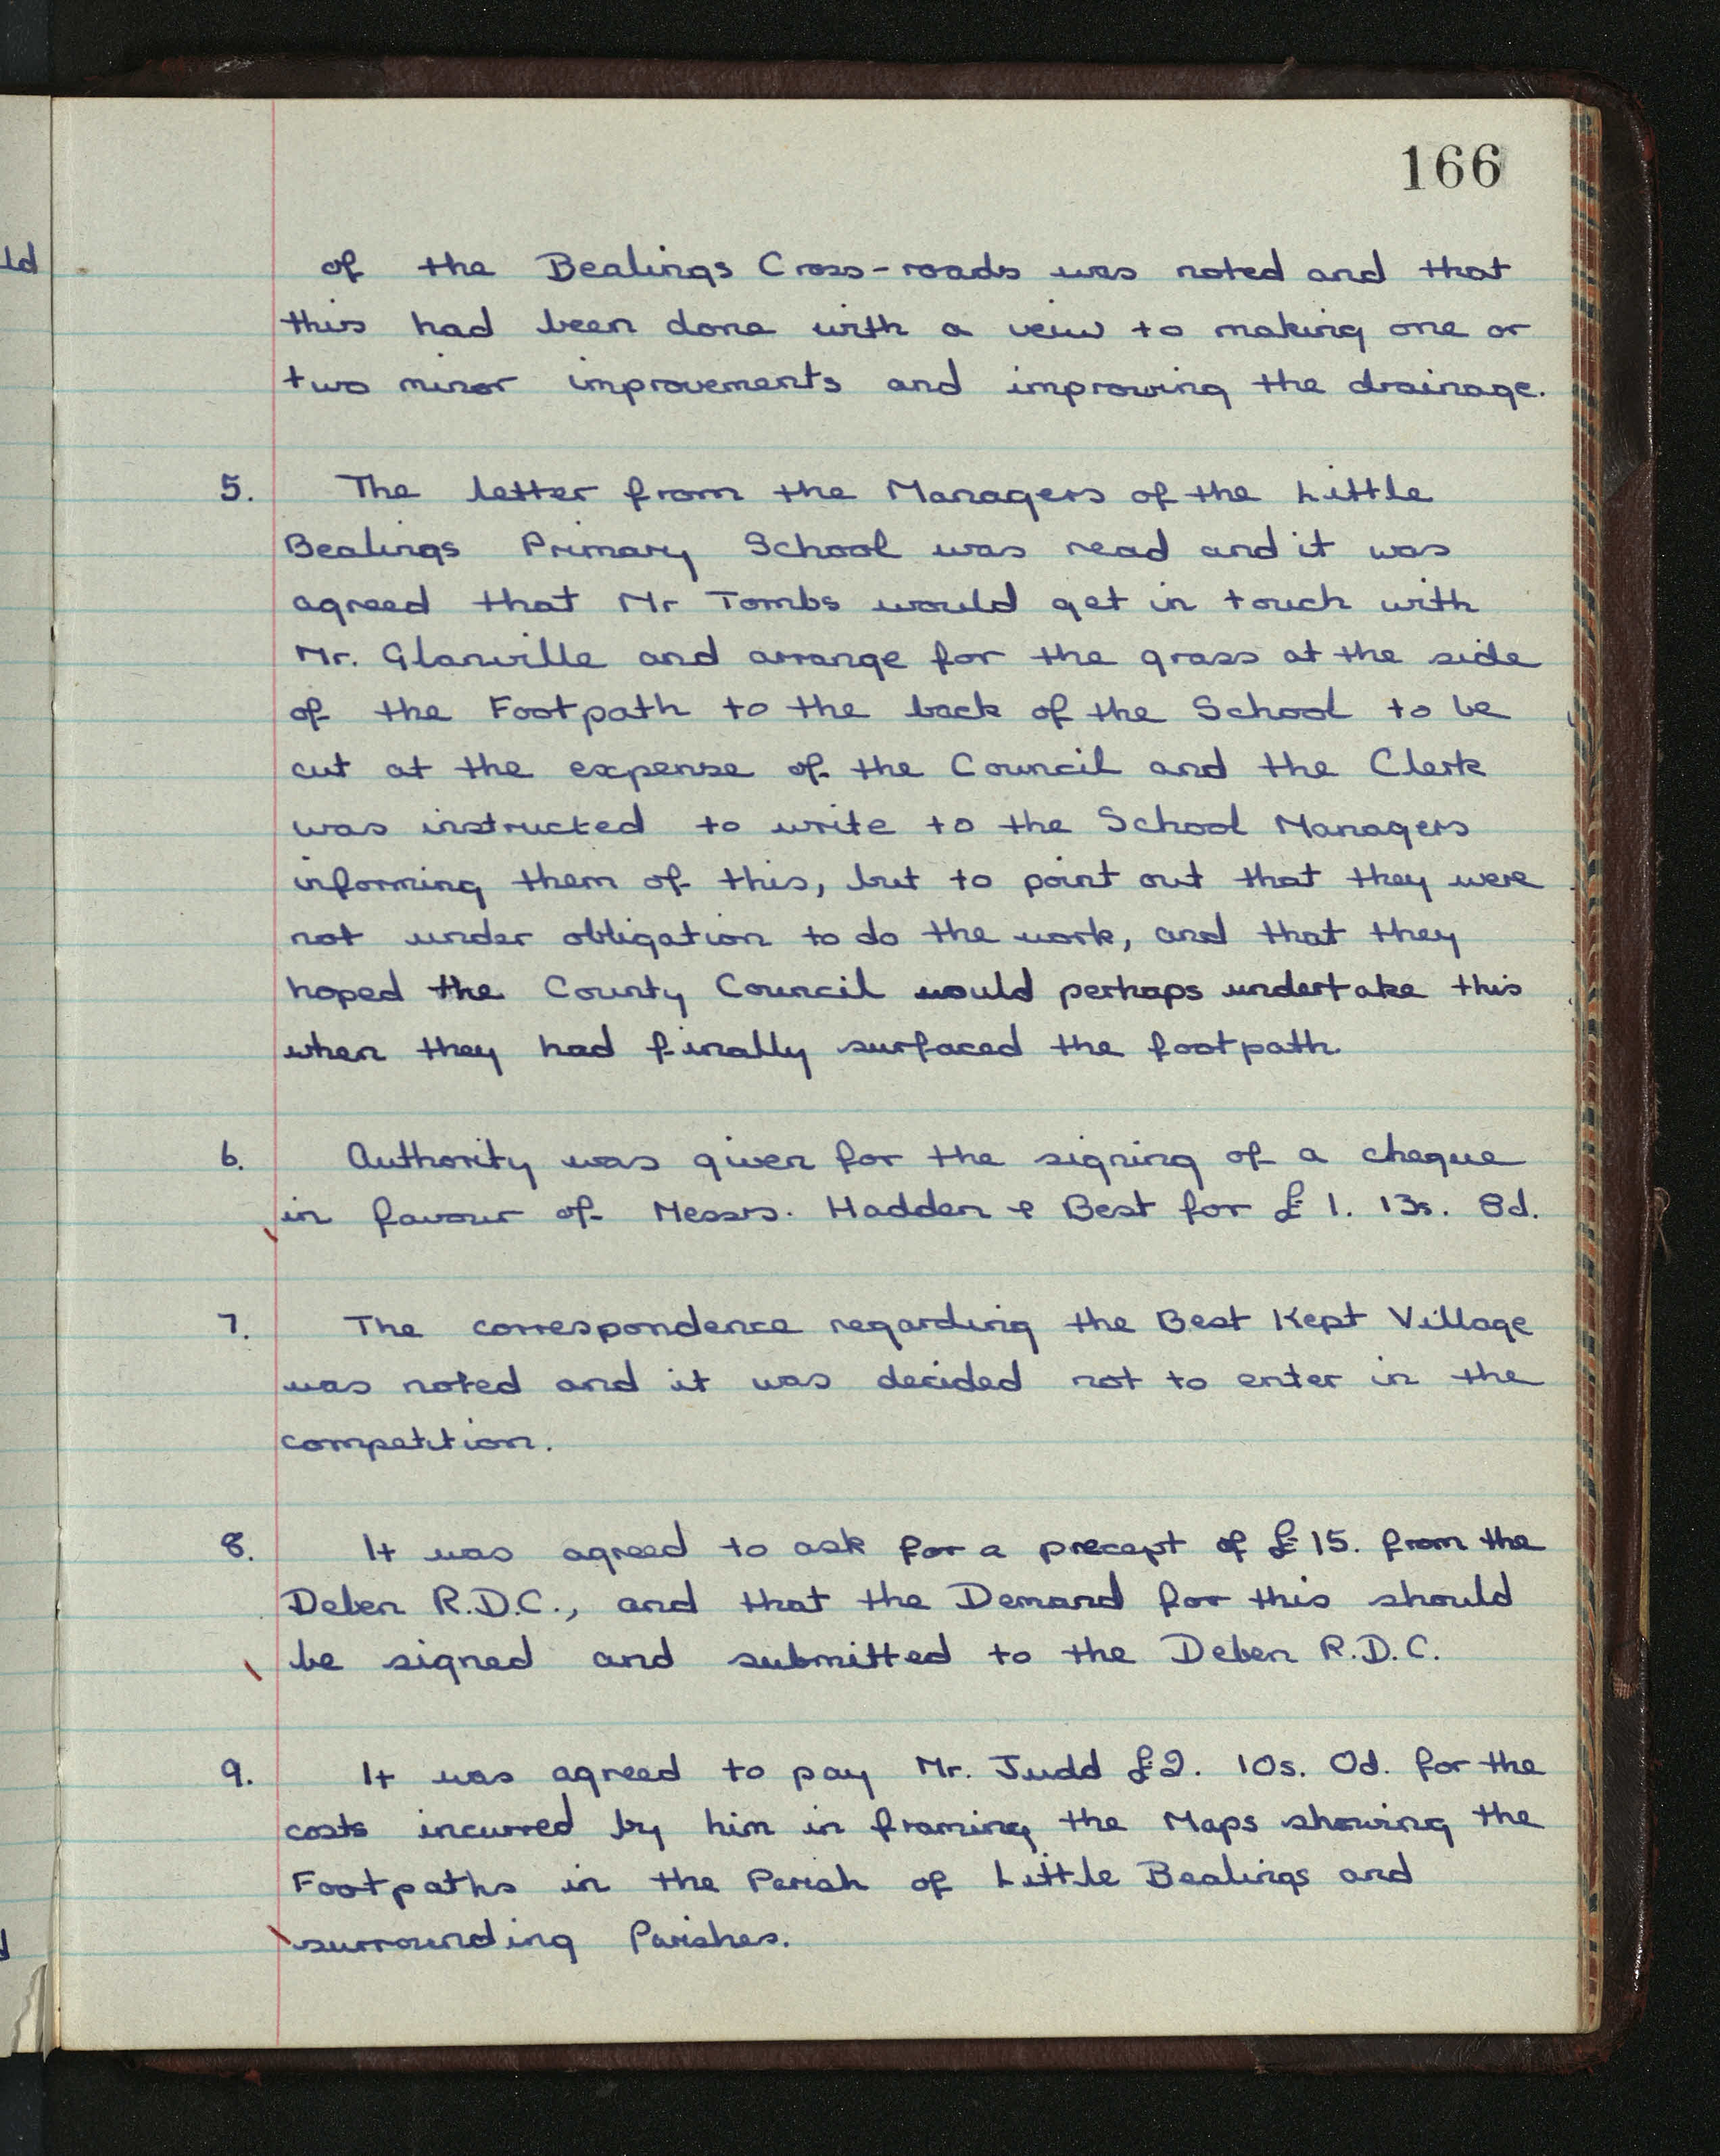 166
of the Bealings Cross-roads was noted and that
this had been done with a veiw to making one or
two minor improvements and improving the drainage.
5. The letter from the Managers of the Little
Bealings Primary School was read and it was
agreed that Mr Tombs would get in touch with
Mr. Glanville and arrange for the grass at the side
of the Footpath to the back of the School to be
cut at the expense of the Council and the Clerk
was instructed to write to the School Managers
informing them of this, but to point out that they were
not under obligation to do the work, and that they
hoped the County Council would perhaps undertake this
when they had finally surfaced the footpath.
6. Authority was given for the signing of a cheque
in favour of Messrs. Hadden & Best for £1. 13s. 8d.
7. The correspondence regarding the Best Kept Village
was noted and it was decided not to enter in the
competition.
8. It was agreed to ask for a precept of £15. from the
Deben R.D.C., and that the Demand for this should
be signed and submitted to the Deben R.D.C.
9. It was agreed to pay Mr. Judd £2. 10s. 0d. for the
costs incurred by him in framing the Maps showing the
Footpaths in the Parish of Little Bealings and
surrounding Parishes.